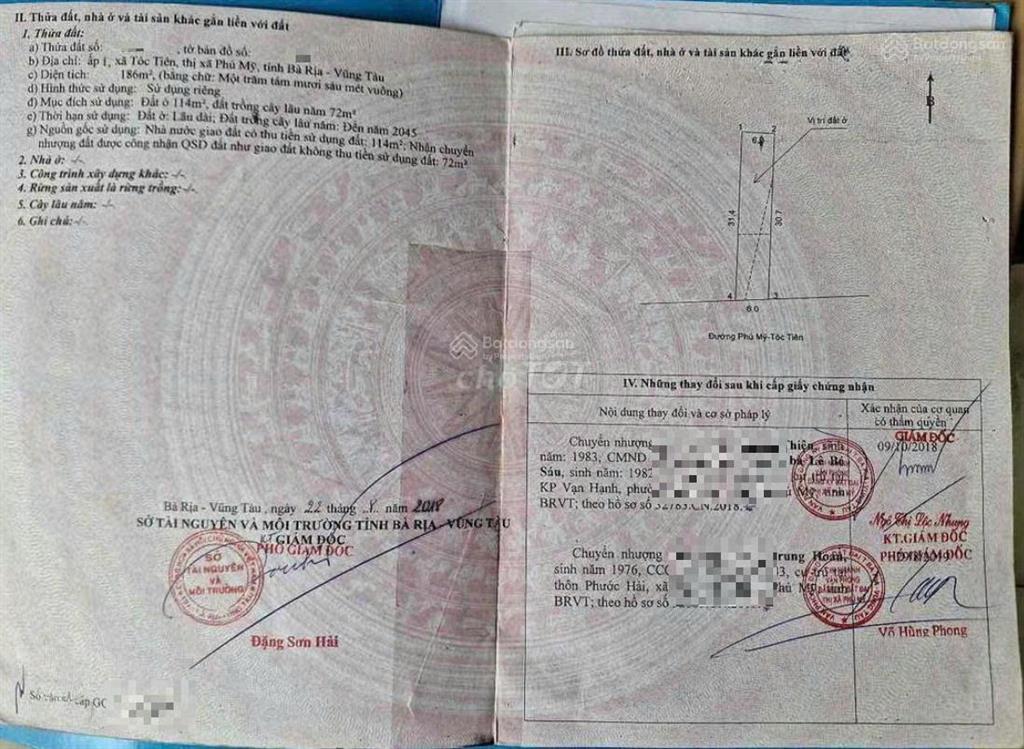 II. Thửa đất, nhà ở và tài sản khác gắn liền với đất
1. Thửa đất:
a) Thửa đất số: , tờ bản đồ số:
b) Địa chỉ: ấp 1, xã Tóc Tiên, thị xã Phú Mỹ, tỉnh Bà Rịa - Vũng Tàu
c) Diện tích: 186m², (bằng chữ: Một trăm tám mươi sáu mét vuông)
d) Hình thức sử dụng: Sử dụng riêng
đ) Mục đích sử dụng: Đất ở 114m², đất trồng cây lâu năm 72m²
e) Thời hạn sử dụng: Đất ở: Lâu dài; Đất trồng cây lâu năm: Đến năm 2045
g) Nguồn gốc sử dụng: Nhà nước giao đất có thu tiền sử dụng đất: 114m²; Nhận chuyển
nhượng đất được công nhận QSD đất như giao đất không thu tiền sử dụng đất: 72m²
2. Nhà ở: -/-
3. Công trình xây dựng khác: -/-
4. Rừng sản xuất là rừng trồng: -/-
5. Cây lâu năm: -/-
6. Ghi chú: -/-
Bà Rịa - Vũng Tàu, ngày 22 tháng năm 2018
SỞ TÀI NGUYÊN VÀ MÔI TRƯỜNG TỈNH BÀ RỊA - VŨNG TÀU
KT.GIÁM ĐỐC
PHÓ GIÁM ĐỐC
SỞ
TÀI NGUYÊN
VÀ
MÔI TRƯỜNG
Đặng Sơn Hải
Số vào sổ cấp GC
III. Sơ đồ thửa đất, nhà ở và tài sản khác gắn liền với đất
B
Vị trí đất ở
1 2
31.4
30.7
4 3
6.0
Đường Phú Mỹ-Tóc Tiên
Batdongsan
by PropertyGuru
Batdongsan
IV. Những thay đổi sau khi cấp giấy chứng nhận
Nội dung thay đổi và cơ sở pháp lý
Xác nhận của cơ quan
có thẩm quyền
Chuyển nhượng Thiện, sinh
năm: 1983, CMND bà Lê Bé
Sáu, sinh năm: 1982
KP Vạn Hạnh, phường Phú Mỹ, tỉnh
BRVT; theo hồ sơ số 32783.CN.2018.
09/10/2018
GIÁM ĐỐC
Ngô Thị Lộc Nhung
Chuyển nhượng Trung Hoan,
sinh năm 1976, CCC 03, cư trú tại
thôn Phước Hải, xã Phú Mỹ, tỉnh
BRVT; theo hồ sơ số
KT.GIÁM ĐỐC
PHÓ GIÁM ĐỐC
Võ Hùng Phong